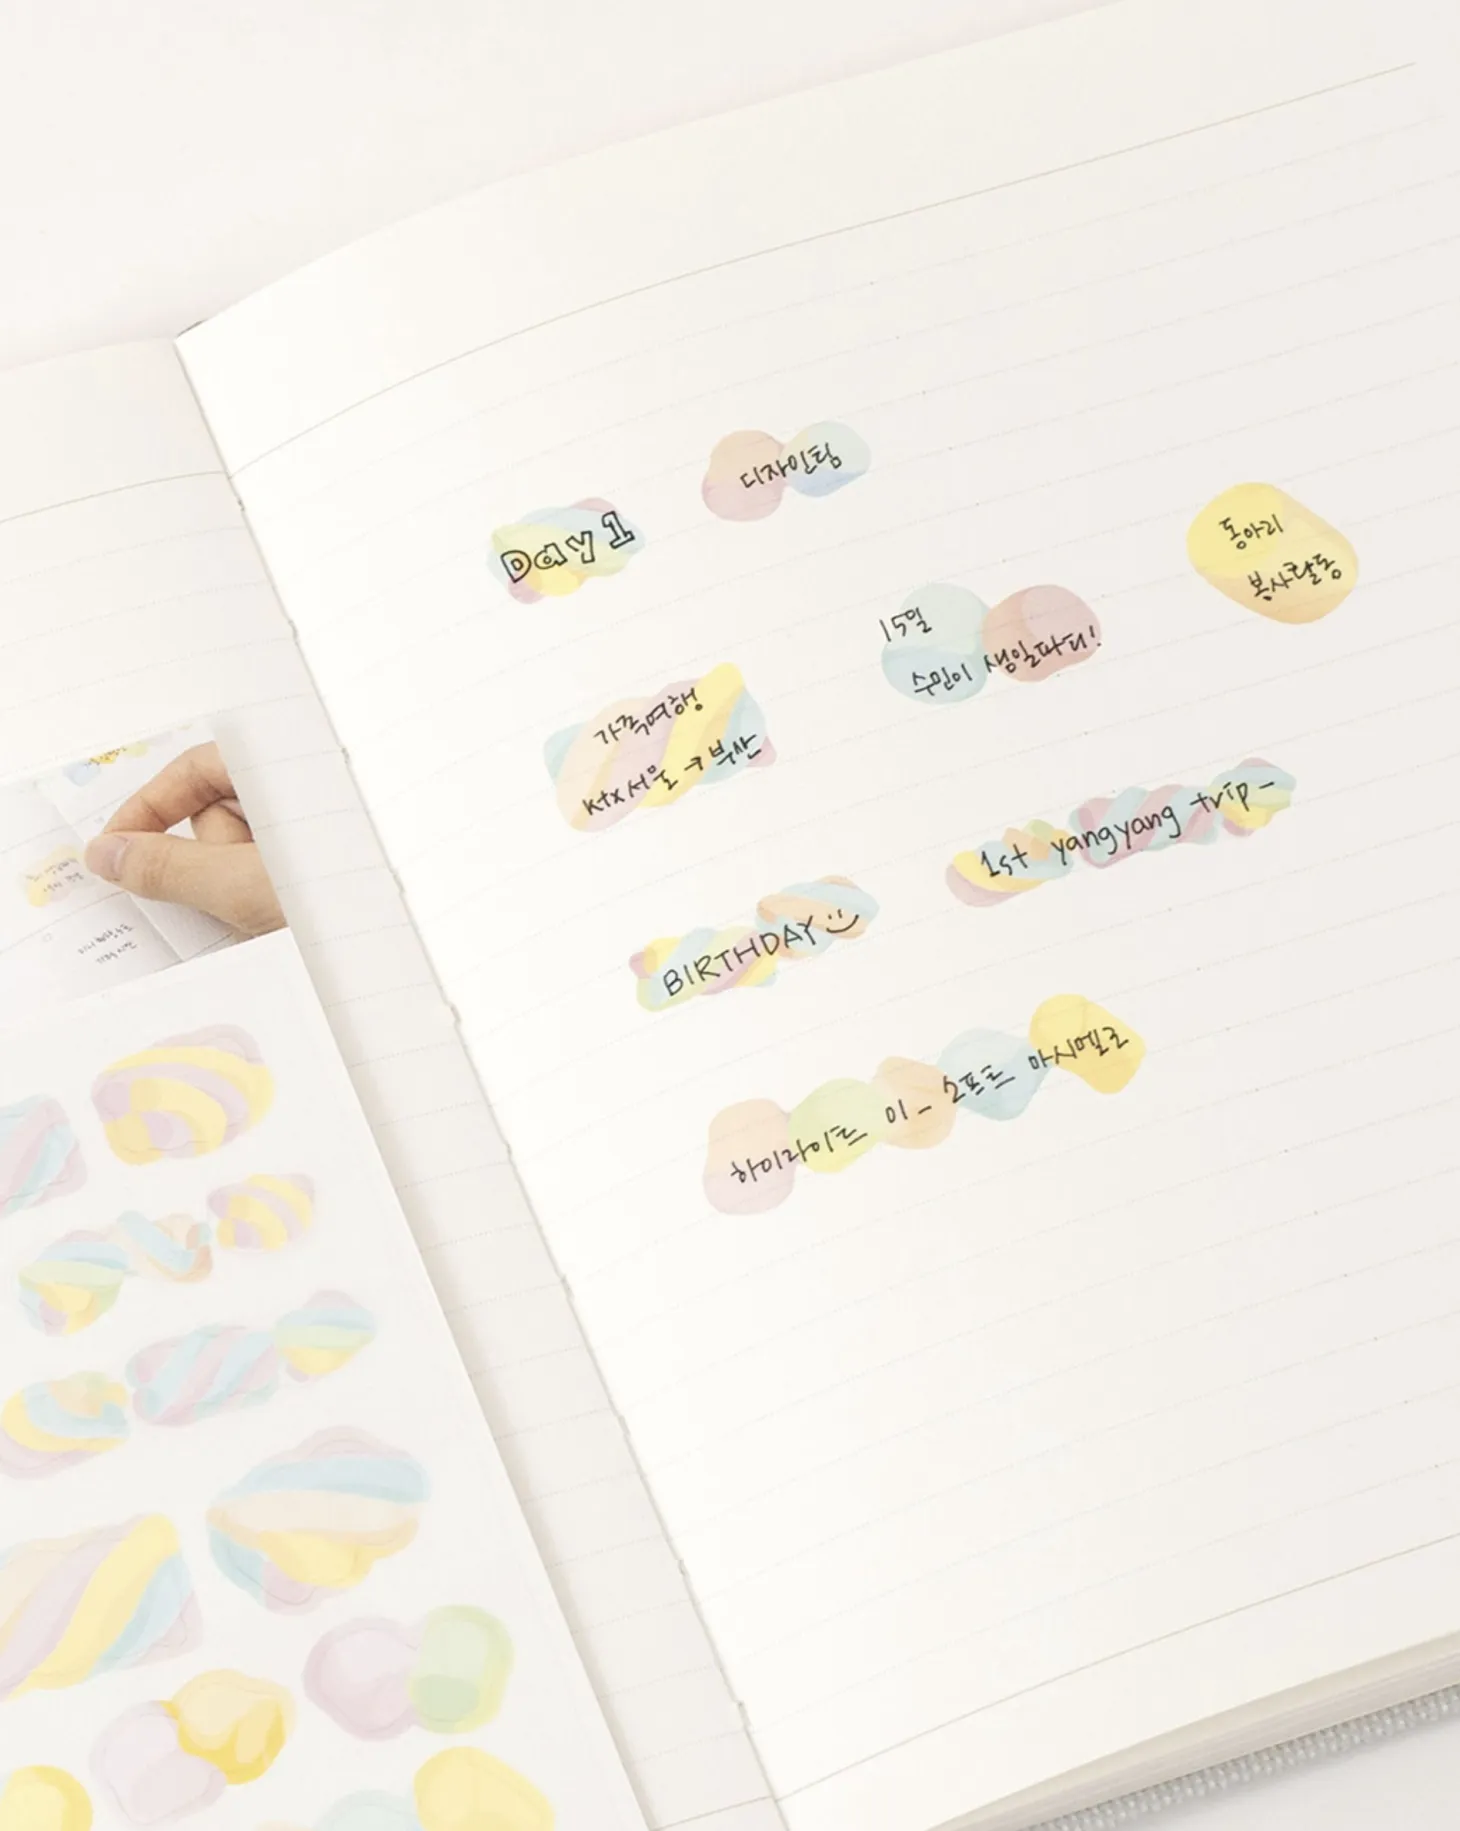 디자인팀
Day 1
동아리
봉사활동
15일
수민이 생일파티!
가족여행
ktx 서울 → 부산
1st yangyang trip -
BIRTHDAY
하이라이트 이 - 소프트 마시멜로